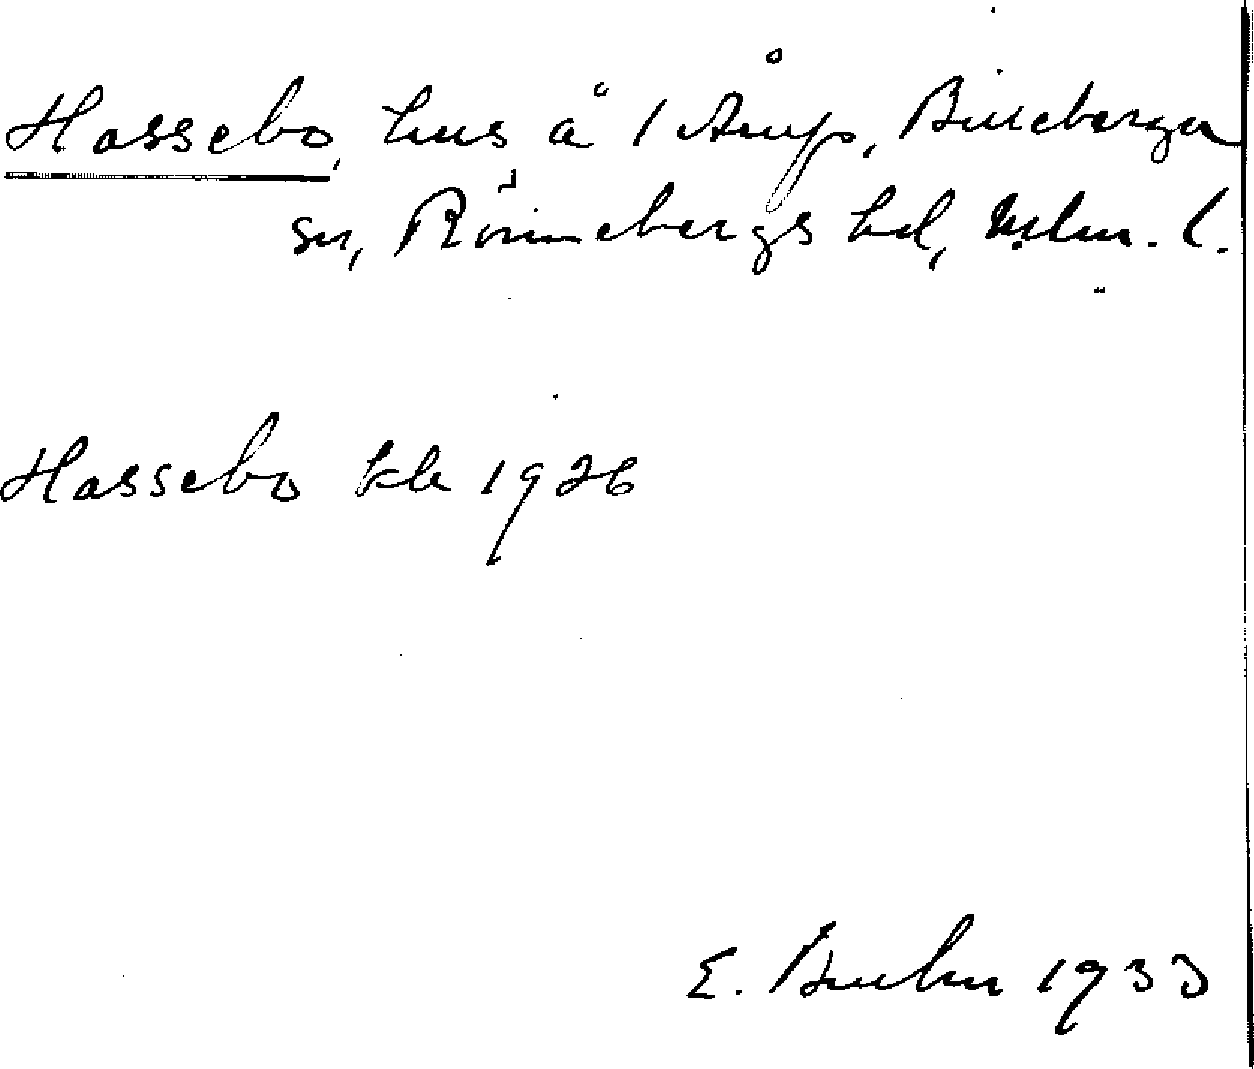 Hassebo, hus å 1 Åmp, Billeberga
sn, Rönnebergs hd, Mlm. l.
Hassebo kk 1926
E. 1933